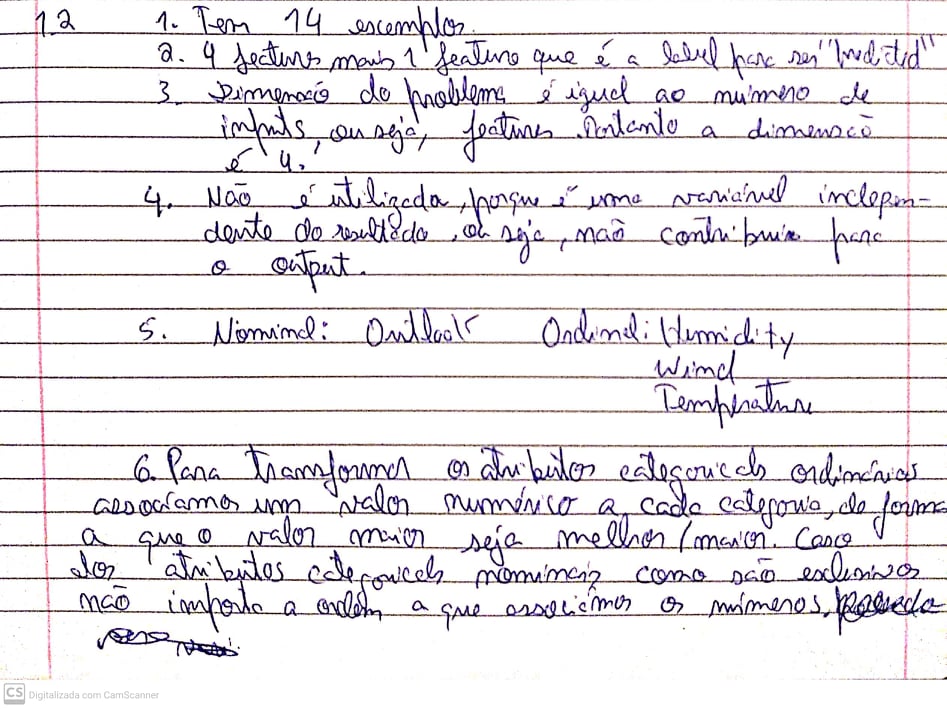 1.2 1. Tem 14 escemplos.
2. 4 features, mais 1 feature que é a label para ser "Predictid"
3. Dimensão do problema é igual ao número de
inputs, ou seja, features. Portanto a dimensão
é 4.
4. Não é utilizada, porque é uma variável indepen-
dente do resultado, ou seja, não contribuir para
o output.
5. Nominal: Outlook Ordinal: Humidity
Wind
Temperature
6. Para transformar os atributos categoricals ordinários
associamos um valor numérico a cada categoria, de forma
a que o valor maior seja melhor/maior. Caso
dos atributos categoricals nominais como são exclusivos
não importa a ordem a que associámos os números.
CS Digitalizada com CamScanner